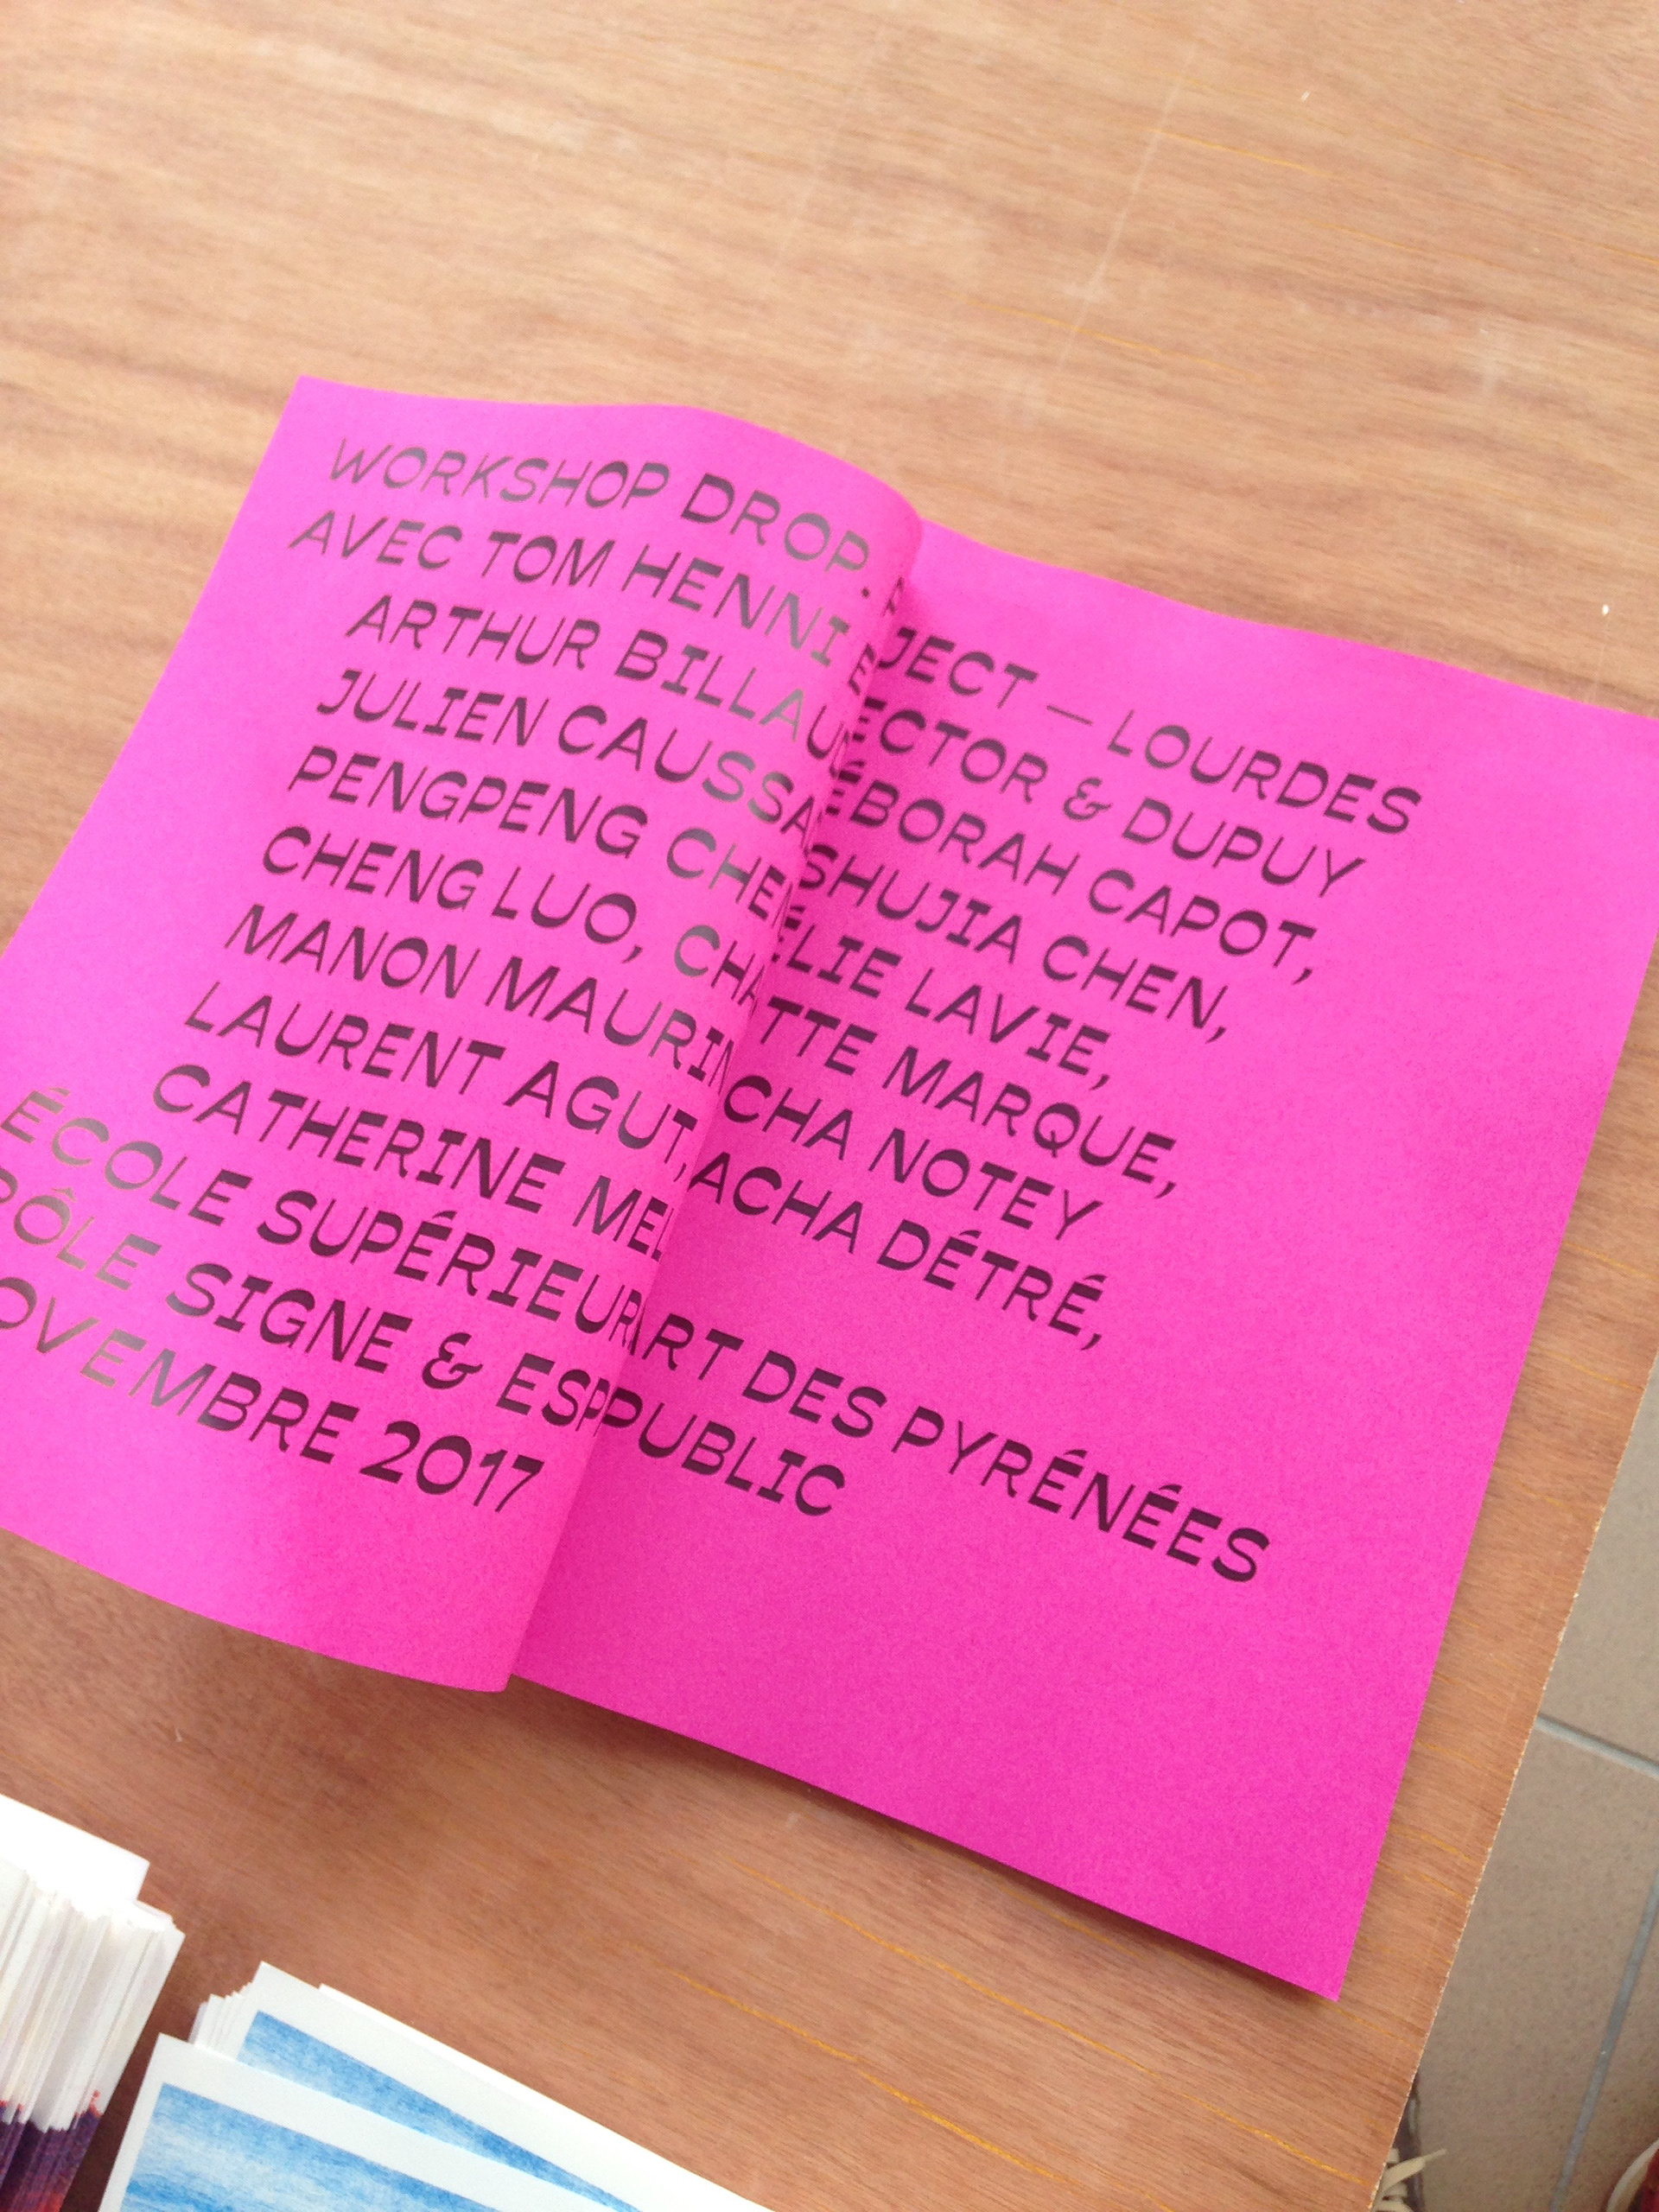 WORKSHOP DROP. JECT — LOURDES
AVEC TOM HENNI ECTOR & DUPUY
ARTHUR BILLAU ÉBORAH CAPOT,
JULIEN CAUSSA SHUJIA CHEN,
PENGPENG CHEN ÉLIE LAVIE,
CHENG LUO, CHA TTE MARQUE,
MANON MAURIN CHA NOTEY
LAURENT AGUT, ACHA DÉTRÉ,
CATHERINE MEL
ÉCOLE SUPÉRIEUR ART DES PYRÉNÉES
PÔLE SIGNE & ESP PUBLIC
OVEMBRE 2017